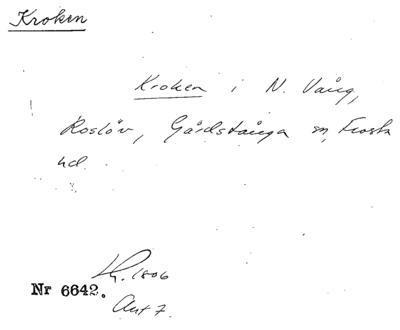 Kroken
Kroken i N. Vång,
Roslöv, Gårdstånga sn, Frosta
hd.
Lh. 1806
Nr 6642.
Akt 7.